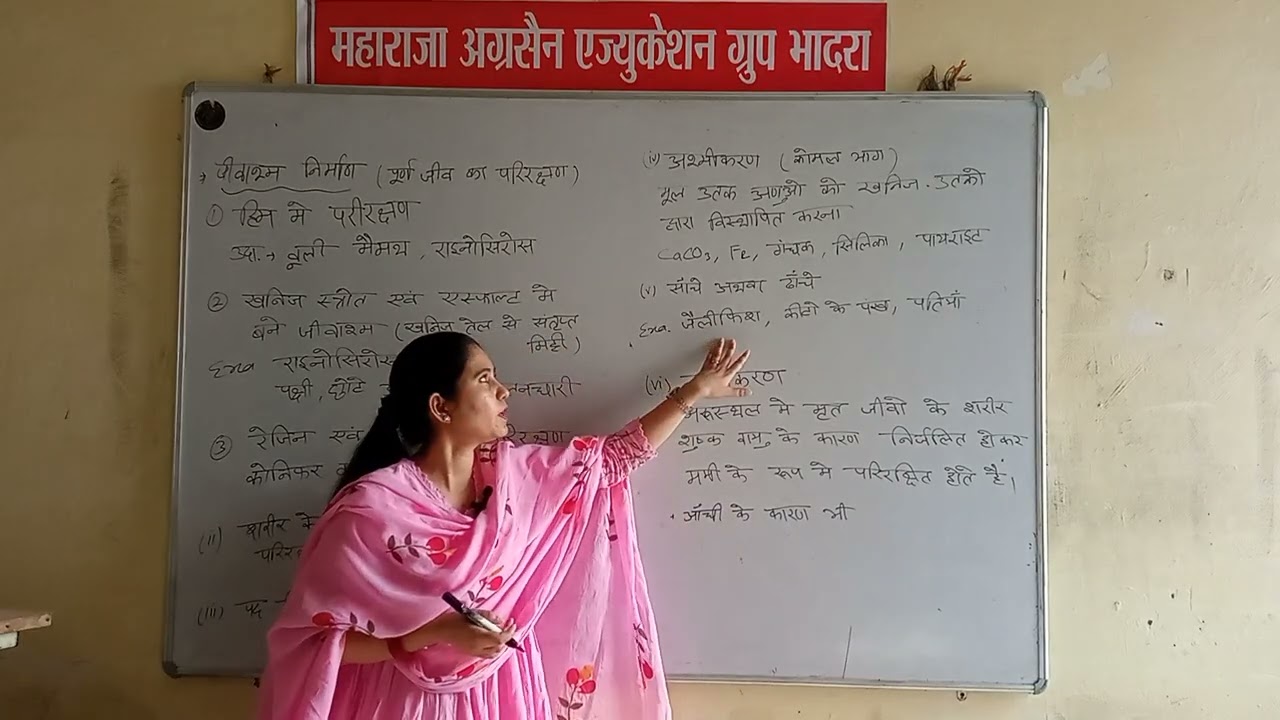 महाराजा अग्रसैन एज्युकेशन ग्रुप भादरा
जीवाश्म निर्माण (पूर्ण जीव का परिरक्षण)
① हिम मे परीरक्षण
उदा. → वूली मैमथ, राइनोसिरोस
② खनिज स्त्रोत एवं एस्फाल्ट मे
बने जीवाश्म (खनिज तेल से सतृप्त
मिट्टी)
Exa राइनोसिरोस
पक्षी, छोटे
③ रेजिन एवं
कोनिफर
(ii) शरीर के
(iii)
(iv) अश्मीकरण (कोमल भाग)
मूल उतक अणुओ को खनिज उतको
द्वारा विस्थापित करना
CaCO₃, Fe, गंधक, सिलिका, पायराइट
(v) साँचे अथवा ढाँचे
Exa. जैलीफिश, कीटो के पंख, पतियाँ
(vi)
मरूस्थल मे मृत जीवो के शरीर
शुष्क वायु के कारण निर्जलित होकर
ममी के रूप मे परिरक्षित होते हैं।
आँधी के कारण भी